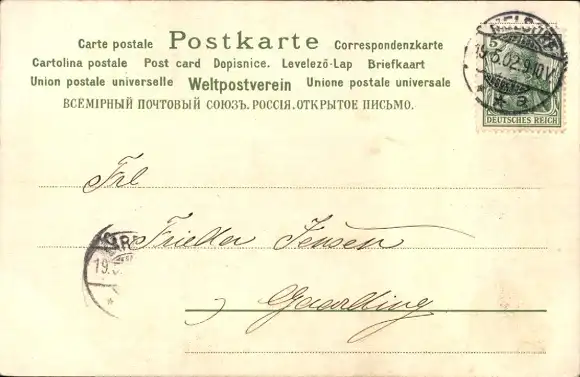 Carte postale Postkarte Correspondenzkarte
Cartolina postale Post card Dopisnice. Levelező-Lap Briefkaart
Union postale universelle Weltpostverein Unione postale universale
ВСЕМІРНЫЙ ПОЧТОВЫЙ СОЮЗЪ. РОССІЯ. ОТКРЫТОЕ ПИСЬМО.
5
19.5.02.9-10V.
* * a
DEUTSCHES REICH
Frl
Frieder Jensen
GAR
19.5
Gaarding